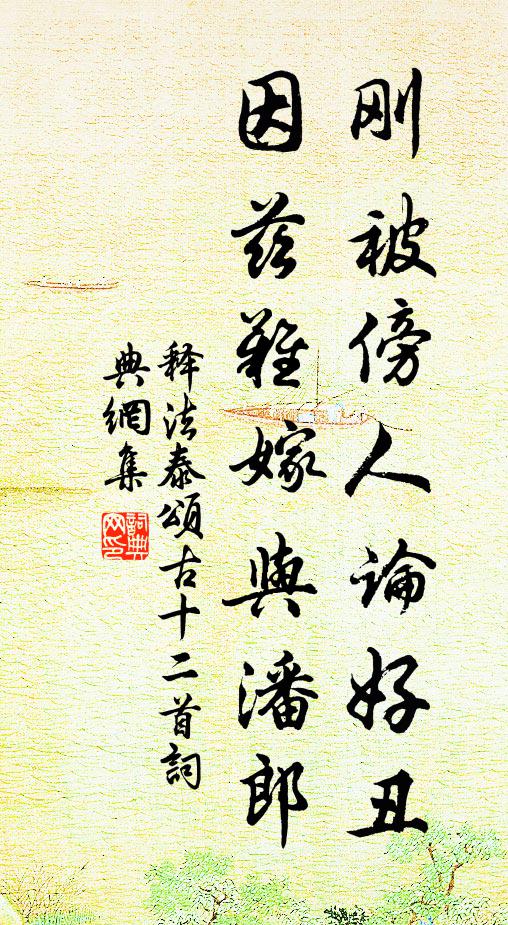 刚被傍人论好丑
因兹难嫁与潘郎
释法泰颂古十二首词
典網集
詞典网印